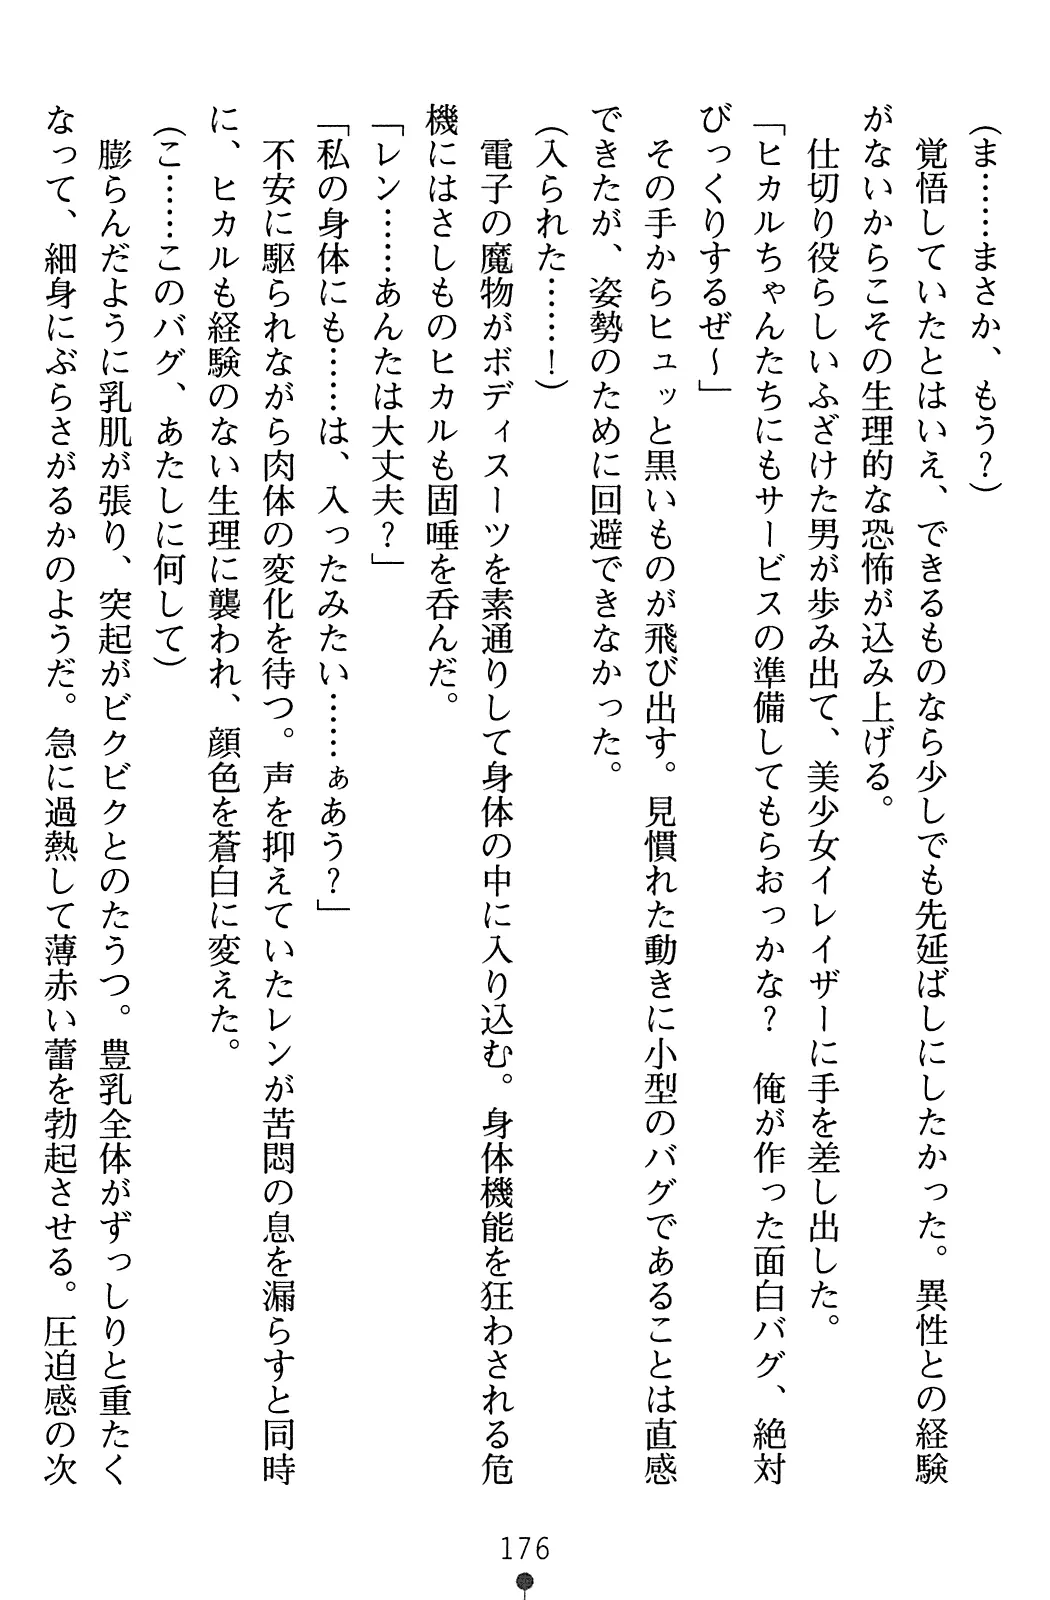 (ま……まさか、もう？)
覚悟していたとはいえ、できるものなら少しでも先延ばしにしたかった。異性との経験
がないからこその生理的な恐怖が込み上げる。
仕切り役らしいふざけた男が歩み出て、美少女イレイザーに手を差し出した。
「ヒカルちゃんたちにもサービスの準備してもらおっかな？　俺が作った面白バグ、絶対
びっくりするぜ～」
その手からヒュッと黒いものが飛び出す。見慣れた動きに小型のバグであることは直感
できたが、姿勢のために回避できなかった。
(入られた……！)
電子の魔物がボディスーツを素通りして身体の中に入り込む。身体機能を狂わされる危
機にはさしものヒカルも固唾を呑んだ。
「レン……あんたは大丈夫？」
「私の身体にも……は、入ったみたい……ぁあう？」
不安に駆られながら肉体の変化を待つ。声を抑えていたレンが苦悶の息を漏らすと同時
に、ヒカルも経験のない生理に襲われ、顔色を蒼白に変えた。
(こ……このバグ、あたしに何して)
膨らんだように乳肌が張り、突起がビクビクとのたうつ。豊乳全体がずっしりと重たく
なって、細身にぶらさがるかのようだ。急に過熱して薄赤い蕾を勃起させる。圧迫感の次
176